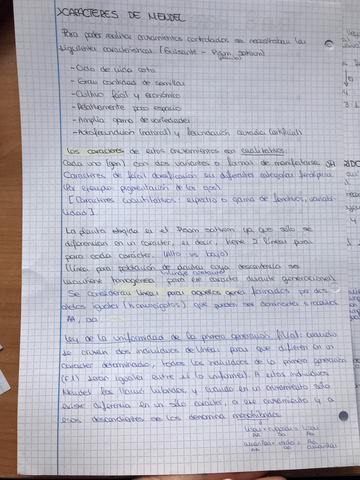 >CARACTERES DE MENDEL
Para poder realizar cruzamientos controlados se necesitaban las
siguientes características. (Guisante - Pisum sativum)
- Ciclo de vida corto
- Gran cantidad de semillas
- Cultivo fácil y económico
- Relativamente poco espacio
- Amplia gama de variedades
- Autofecundación (natural) y fecundación cruzada (artificial)
Los caracteres de estos cruzamientos son cualitativos:
Cada uno (gen) con dos variantes o formas de manifestarse.
Caracteres de fácil clasificación en diferentes categorías fenotípicas
(Por ejemplo pigmentación de los ojos)
[Caracteres cuantitativos: espectro o gama de fenotipos, variabi-
lidad]
La planta elegida es el Pisum sativum ya que solo se
diferencian en un carácter, es decir, tiene 2 líneas puras
para cada carácter. (Alto vs bajo)
(Línea pura población de plantas cuya descendencia se
mantiene homogénea para ese carácter durante generaciones).
Se consideran líneas puras aquellos genes formados por dos
alelos iguales (Homocigotos) que pueden ser dominantes o recesivos
AA, aa.
Ley de la uniformidad de la primera generación filial: cuando
se cruzan dos individuos de líneas puras que difieren en un
carácter determinado, todos los individuos de la primera generación
(F1) serán iguales entre sí (o uniforme). A estos individuos
Mendel los llamó híbridos, y cuando en un cruzamiento sólo
existe diferencia en un sólo carácter, a ese cruzamiento y a
esos descendientes se les denomina monohíbridos.